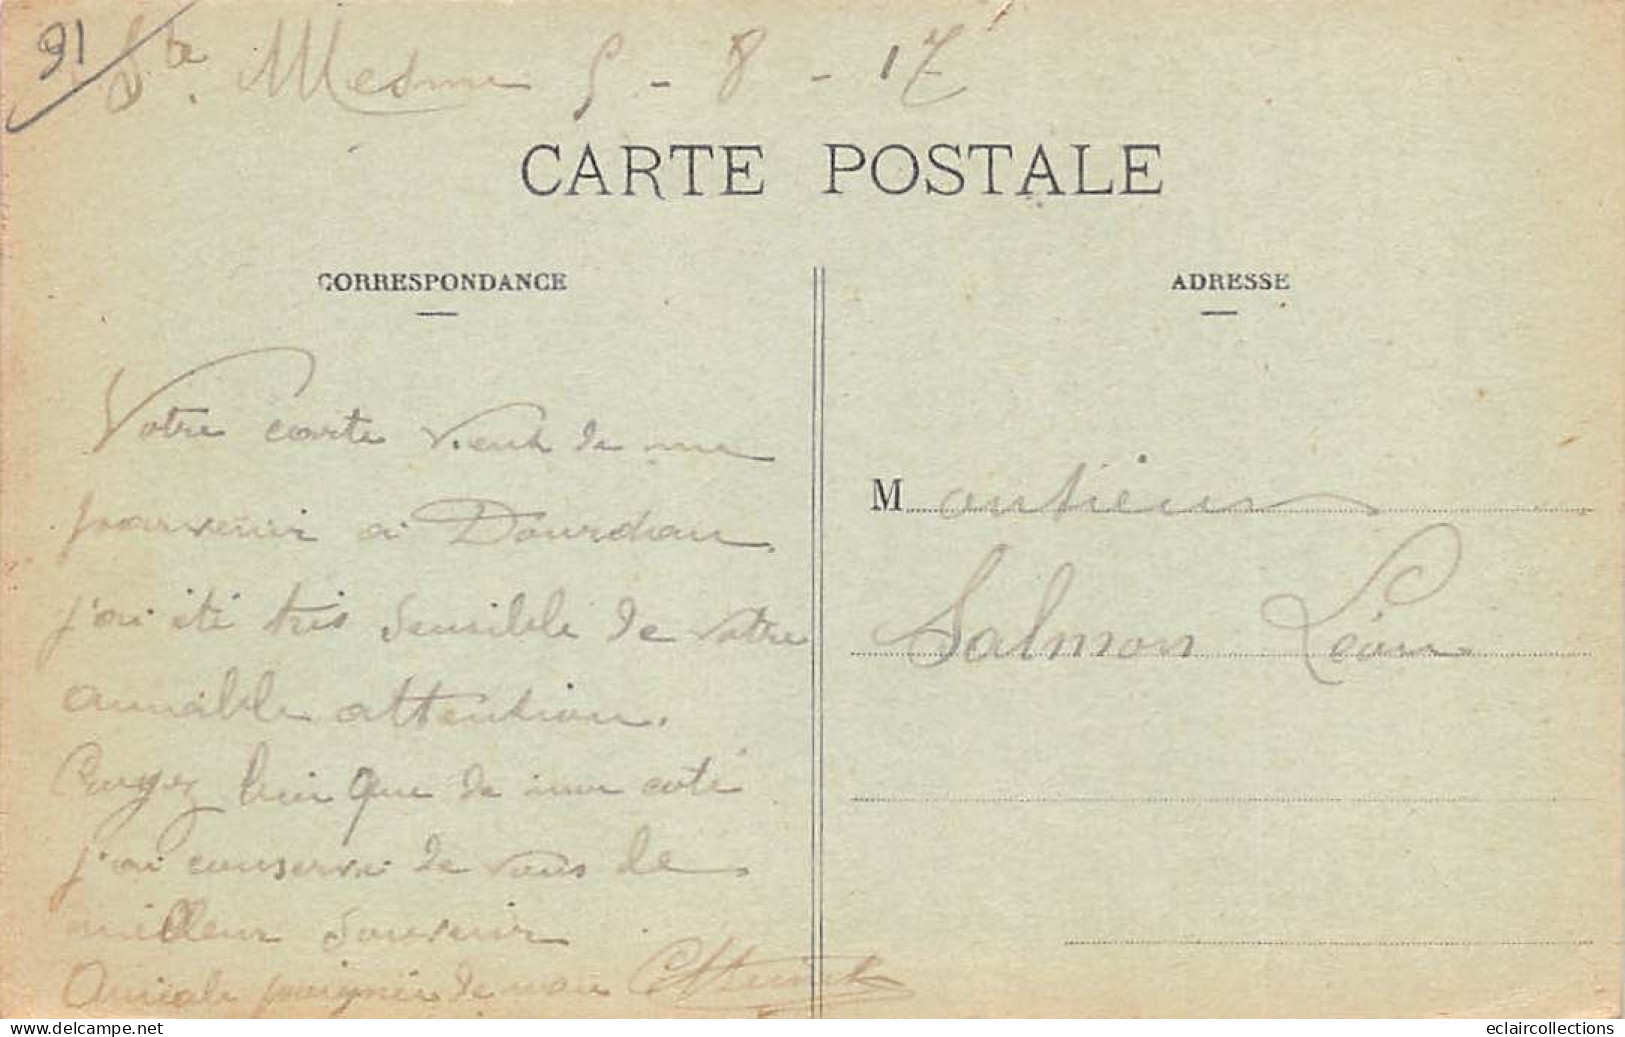 91
Ste. Mesme 5 - 8 - 17
CARTE POSTALE
CORRESPONDANCE
ADRESSE
Votre carte vient de me
parvenir à Dourdan.
j'ai été très sensible de votre
aimable attention.
Croyez bien que de mon coté
j'ai conservé de vous le
meilleur souvenir
Amicale poignée de main
Monsieur
Salmon Léon
www.delcampe.net
eclaircollections